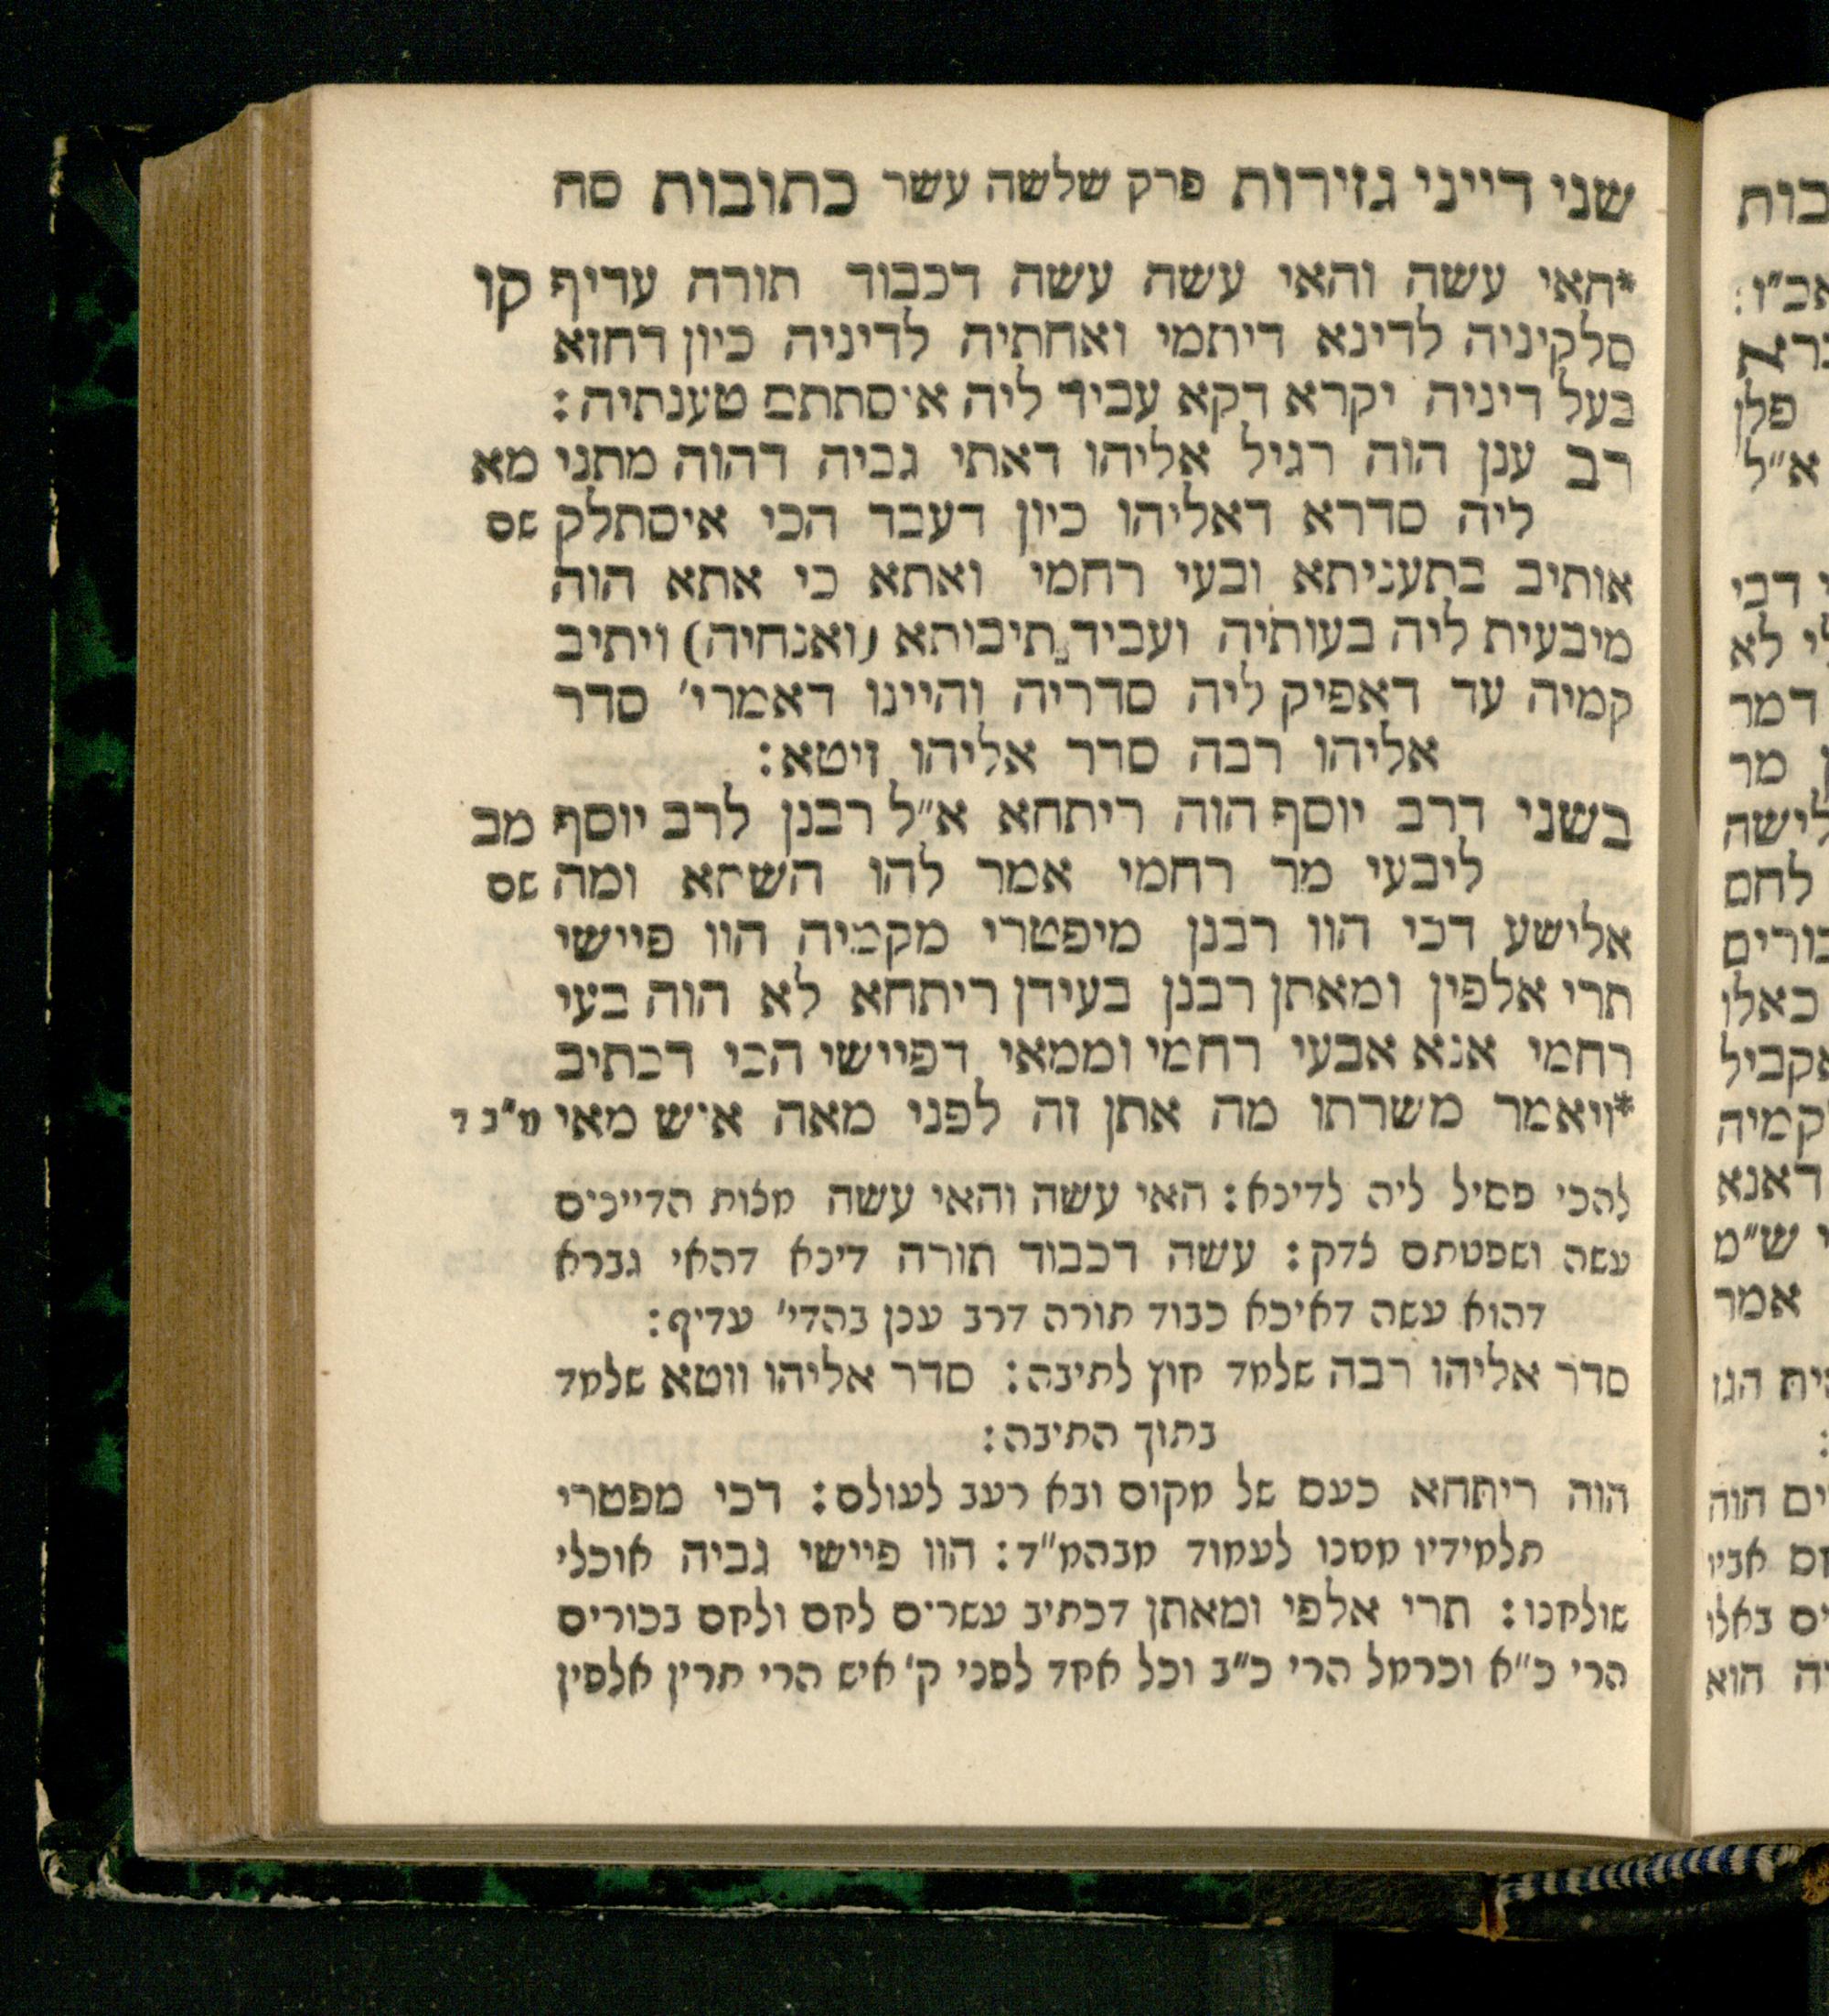 שני דייני גזירות פרק שלשה עשר כתובות סח
*האי עשה והאי עשה עשה דכבוד תורה עדיף קו
סלקיניה לדינא דיתמי ואחתיה לדיניה כיון דחזא
בעל דיניה יקרא דקא עביד ליה איסתתם טענתיה:
רב ענן הוה רגיל אליהו דאתי גביה דהוה מתני מא
ליה סדרא דאליהו כיון דעבד הכי איסתלק שם
אותיב בתעניתא ובעי רחמי ואתא כי אתא הוה
מיבעית ליה בעותיה ועביד תיבותא (ואנחיה) ויתיב
קמיה עד דאפיק ליה סדריה והיינו דאמרי' סדר
אליהו רבה סדר אליהו זיטא:
בשני דרב יוסף הוה ריתחא א"ל רבנן לרב יוסף מב
ליבעי מר רחמי אמר להו השתא ומה שם
אלישע דכי הוו רבנן מיפטרי מקמיה הוו פיישי
תרי אלפין ומאתן רבנן בעידן ריתחא לא הוה בעי
רחמי אנא אבעי רחמי וממאי דפיישי הכי דכתיב
*ויאמר משרתו מה אתן זה לפני מאה איש מאי מ"ב ד
להכי פסיל ליה לדינא: האי עשה והאי עשה מצות הדיינים
עשה ושפטתם צדק: עשה דכבוד תורה דינא דהאי גברא
דהוא עשה דאיכא כבוד תורה דרב ענן בהדי' עדיף:
סדר אליהו רבה שלמד חוץ לתיבה: סדר אליהו זוטא שלמד
בתוך התיבה:
הוה ריתחא כעס של מקום ובא רעב לעולם: דכי מפטרי
תלמידיו ממנו לעמוד מבהמ"ד: הוו פיישי גביה אוכלי
שולחנו: תרי אלפי ומאתן דכתיב עשרים לחם ולחם בכורים
הרי כ"א וכרמל הרי כ"ב וכל אחד לפני ק' איש הרי תרין אלפין